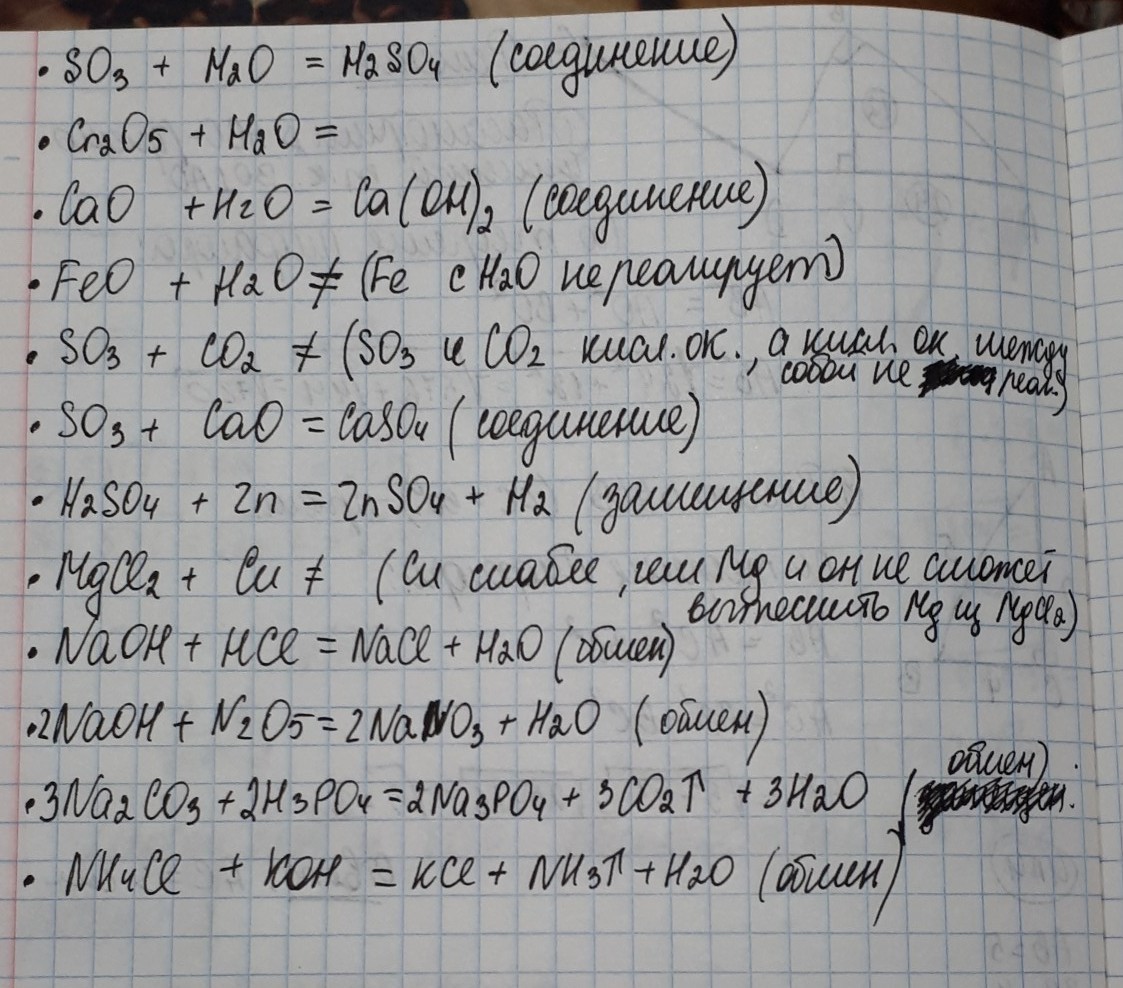 · SO3 + H2O = H2SO4 (соединение)
· Cr2O5 + H2O =
· CaO + H2O = Ca(OH)2 (соединение)
· FeO + H2O ≠ (Fe с H2O не реагирует)
· SO3 + CO2 ≠ (SO3 и CO2 кисл. ок., а кисл. ок. между
собой не реаг.)
· SO3 + CaO = CaSO4 (соединение)
· H2SO4 + Zn = ZnSO4 + H2 (замещение)
· MgCl2 + Cu ≠ (Cu слабее, чем Mg и он не сможет
вытеснить Mg из MgCl2)
· NaOH + HCl = NaCl + H2O (обмен)
· 2NaOH + N2O5 = 2NaNO3 + H2O (обмен)
· 3Na2CO3 + 2H3PO4 = 2Na3PO4 + 3CO2↑ + 3H2O (обмен)
· NH4Cl + KOH = KCl + NH3↑ + H2O (обмен)